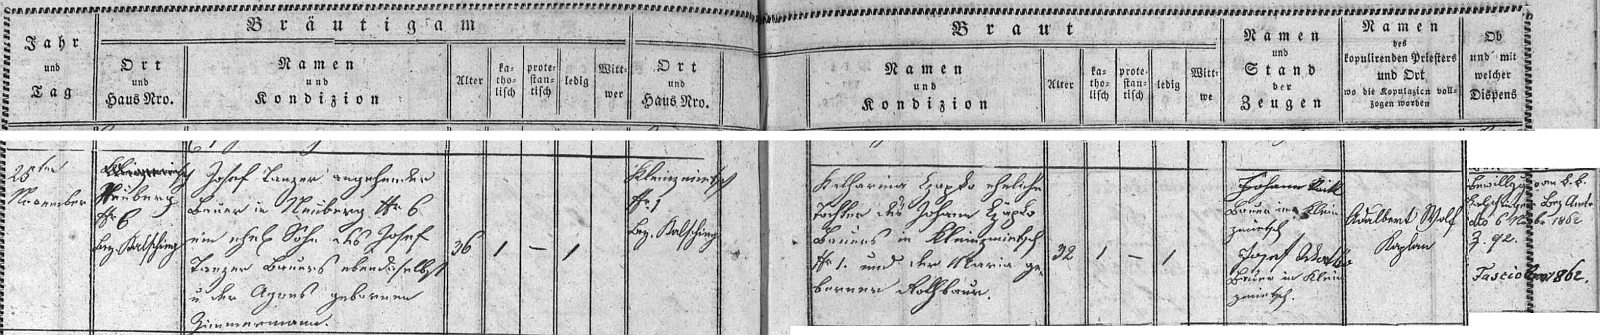 Jahr
und
Tag
Bräutigam
Ort
und
Haus Nro.
Namen
und
Kondizion
Alter
ka-
tho-
lisch
prote-
stan-
tisch
ledig
Witt-
wer
Ort
und
Haus Nro.
Braut
Namen
und
Kondizion
Alter
ka-
tho-
lisch
prote-
stan-
tisch
ledig
Witt-
we
Namen
und
Stand
der
Zeugen
Namen
des
kopulirenden Priesters
und Ort
wo die Kopulazion voll-
zogen worden
Ob
und mit
welcher
Dispens
25ten
November
Neuberg
Nr 6
Bez. Kalsching
Josef Tanzer angehender
Bauer in Neuberg Nr 6
ein ehel. Sohn des Josef
Tanzer Bauers ebendaselbst
u der Agnes geborenen
Zimmermann.
36
1
—
1
Kleinzmietsch
Nr 1
Bez. Kalsching
Katharina Czapko eheliche
Tochter des Johann Czapko
Bauers in Kleinzmietsch
Nr 1. und der Maria ge-
borener Rothbaur.
32
1
—
1
Johann
Bauer in Klein
zmietsch
Josef
Bauer in Klein
zmietsch.
Adalbert Wolf
Kaplan
Bewilligung vom k. k.
Bez Amte
1862
Z. 92.
1862.